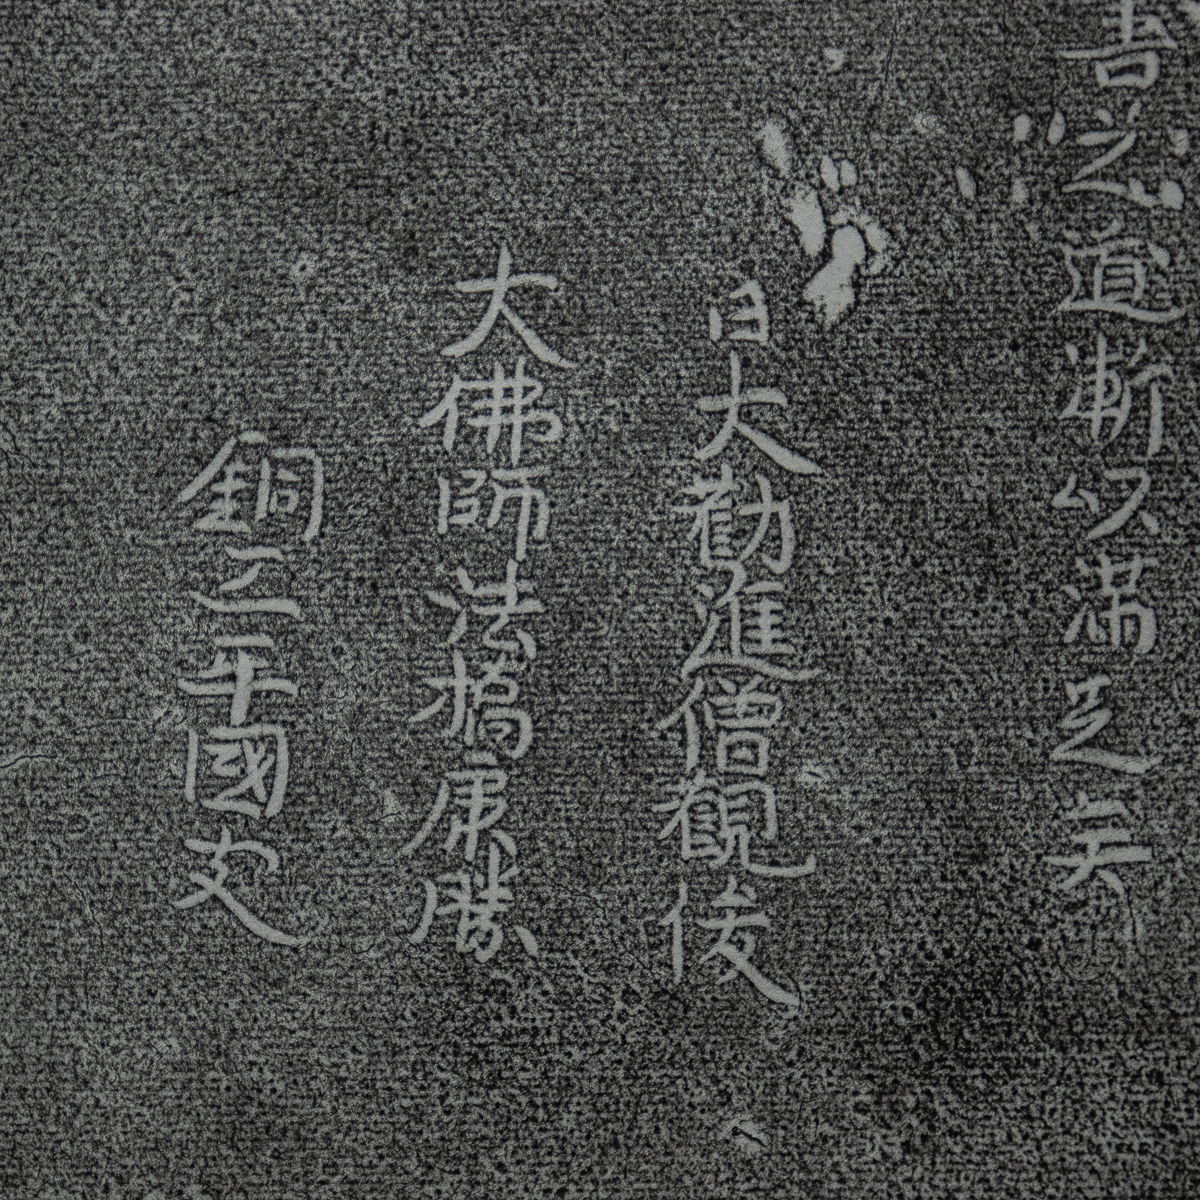 善之道漸以満足矣
日大勧進僧觀俊
大佛師法橋康勝
銅工平國友